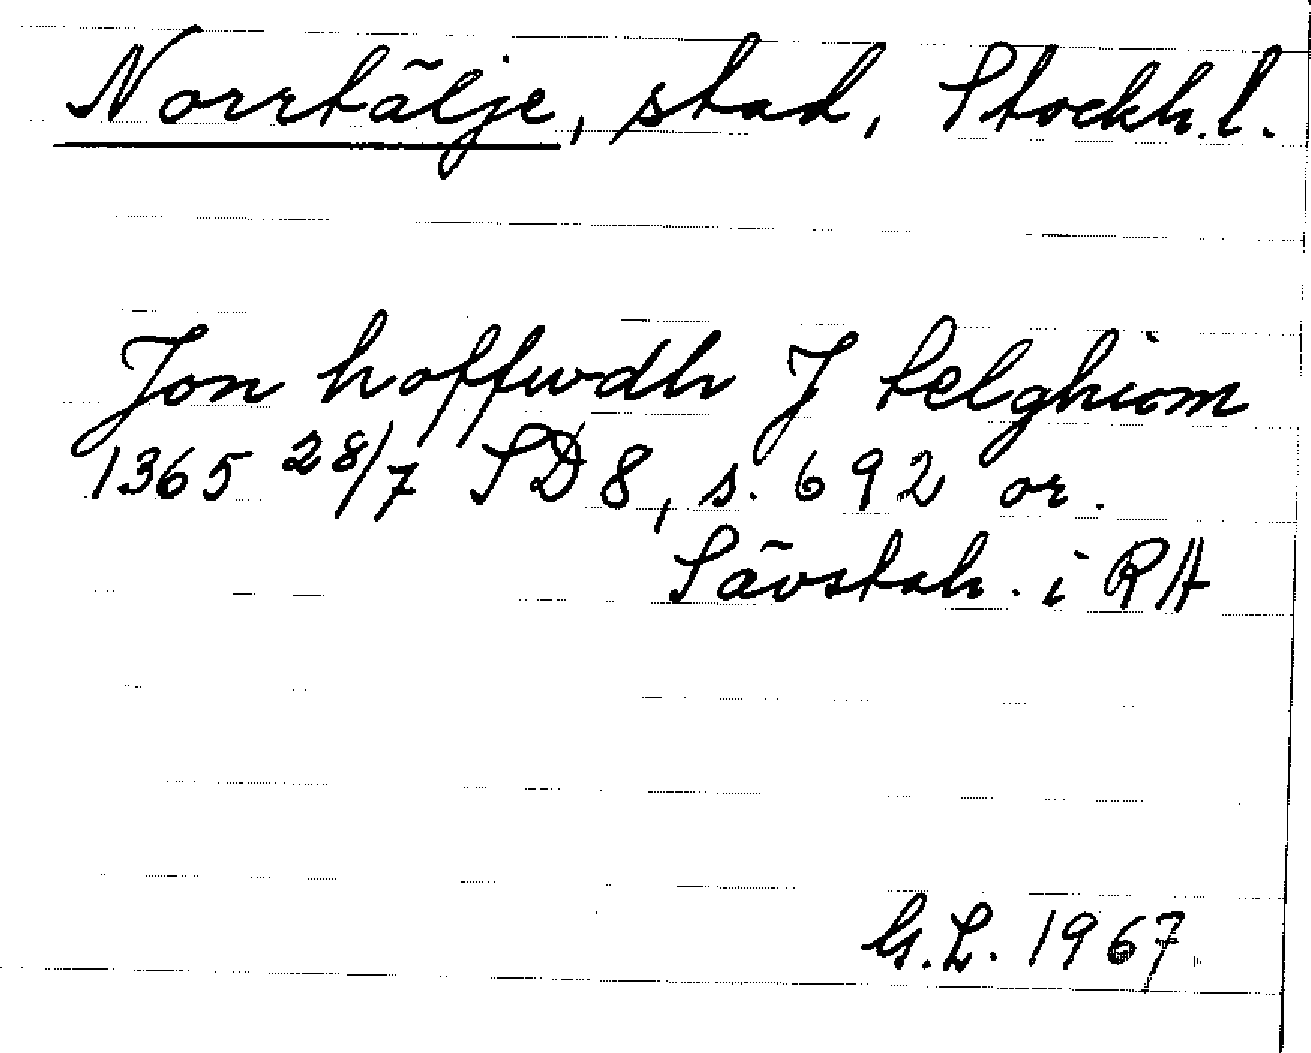 Norrtälje, stad, Stockh. l.
Jon hoffwdh J telghiom
1365 28/7 SD 8, s. 692 or.
Sävstah. i RA
G.L. 1967